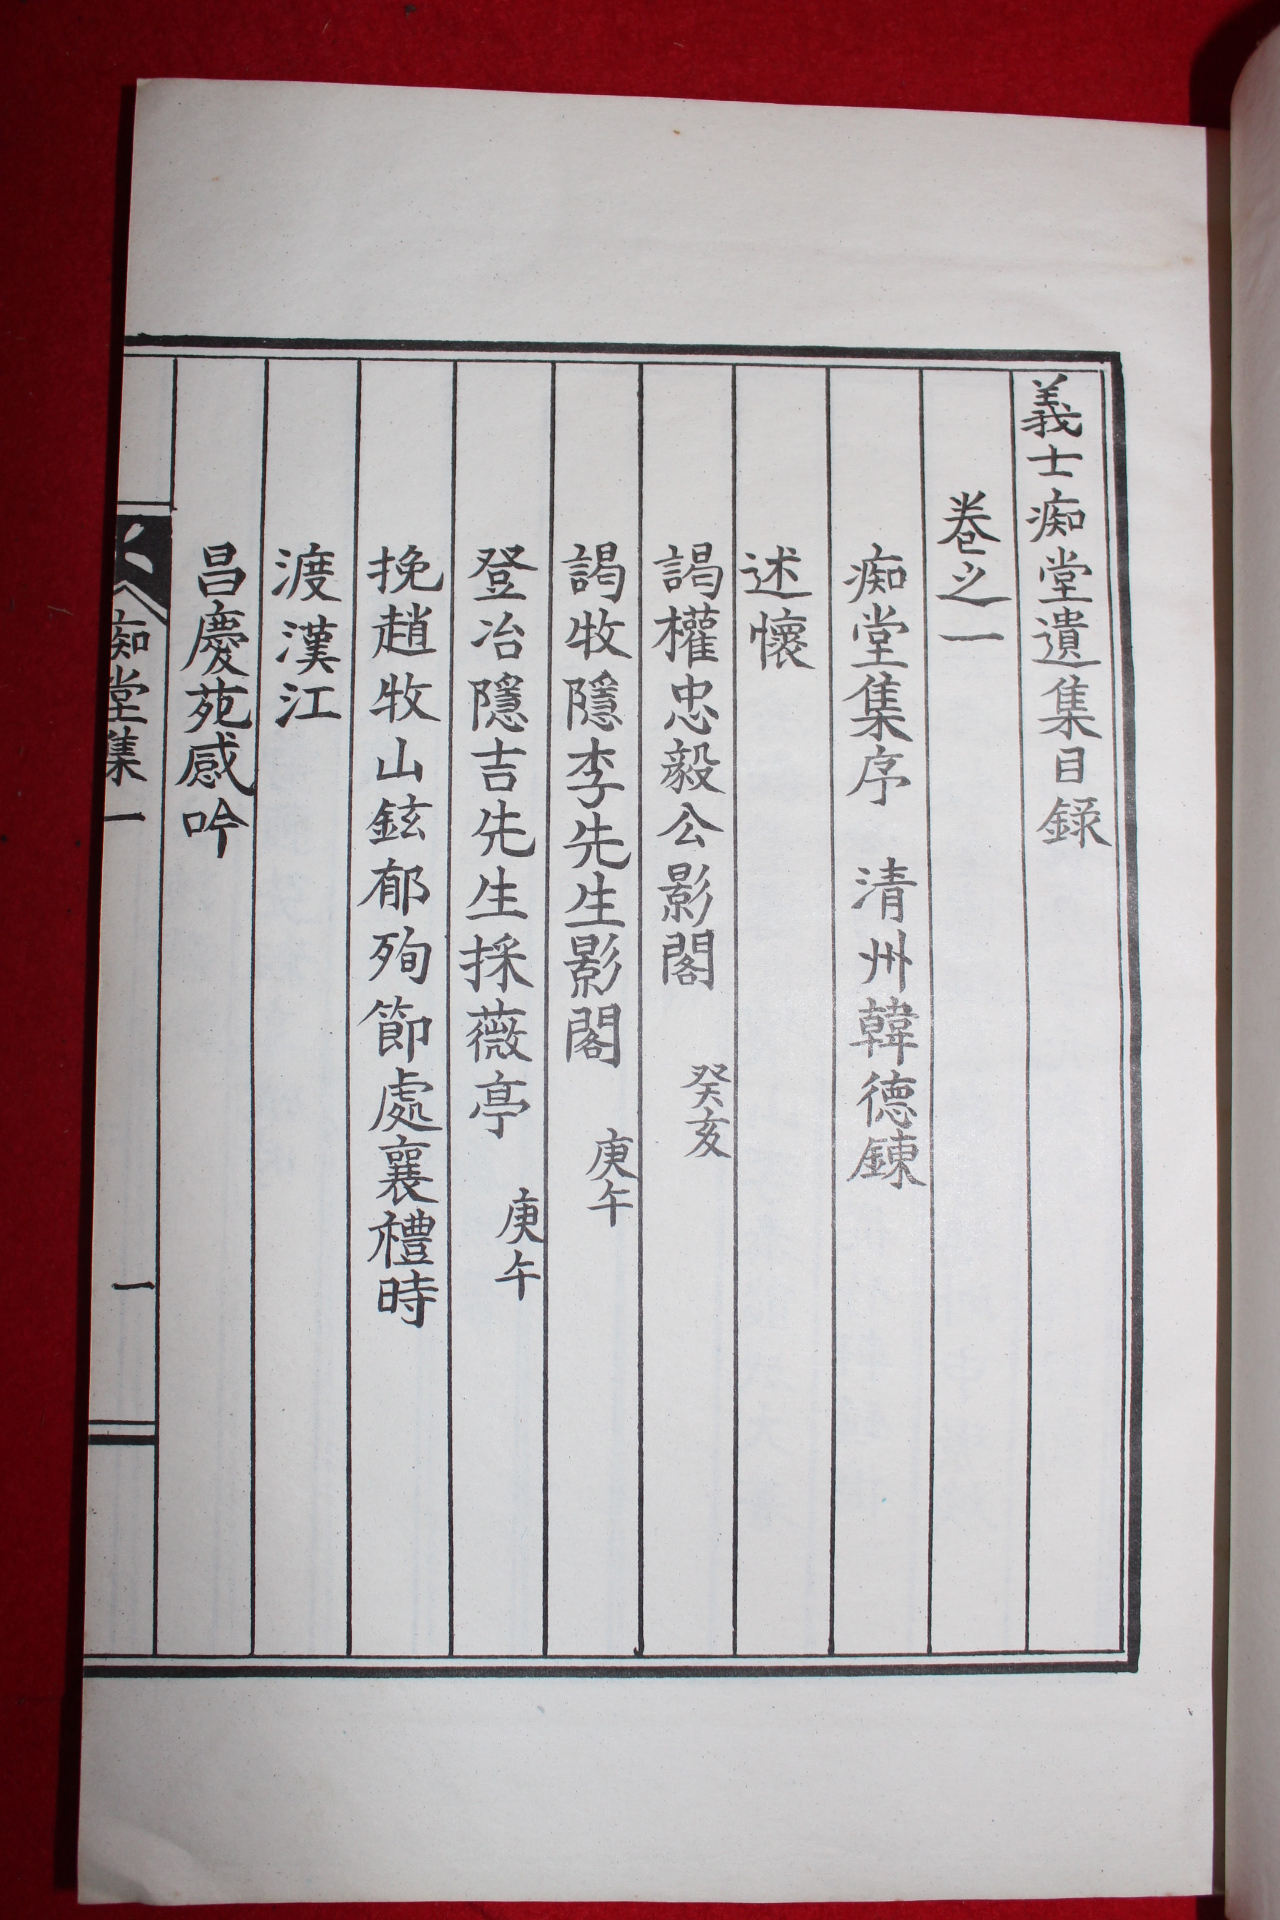 義士痴堂遺集目録
卷之一
痴堂集序 清州韓德鍊
述懷
謁權忠毅公影閣 癸亥
謁牧隱李先生影閣 庚午
登冶隱吉先生採薇亭 庚午
挽趙牧山鉉郁殉節處襄禮時
渡漢江
昌慶苑感吟
痴堂集一
一